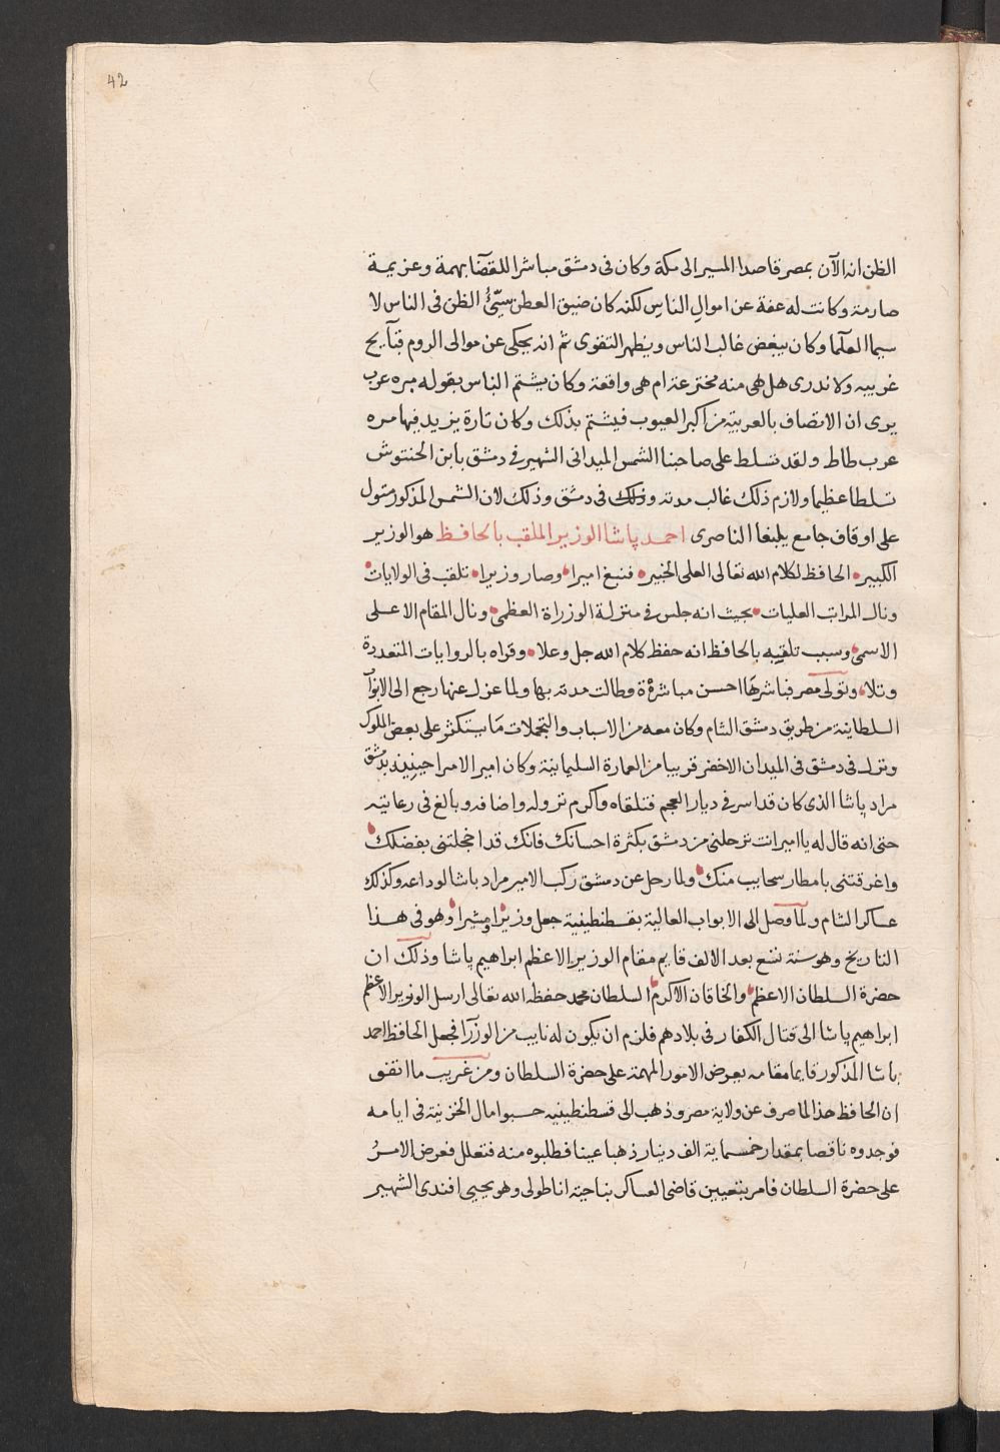 42
الظن انه الآن بمصر قاصدا المسير الى مكة وكان فى دمشق مباشرا للقضا بهمة وعزيمة
صارمة وكانت له عفة عن اموال الناس لكنه كان ضيق العطن سيّئُ الظن فى الناس لا
سيما العلما وكان يبغض غالب الناس ويظهر التقوى ثم انه يحكى عن موالى الروم قبآيح
غريبه ولا ندرى هل هى منه مخترعة ام هى واقعة وكان يشتم الناس بقوله بره عرب
يرى ان الاتصاف بالعربية من اكبر العيوب فيشتم بذلك وكان تارة يزيد فيها مره
عرب طاط ولقد تسلط على صاحبنا الشمس الميدانى الشهير فى دمشق بابن الحنتوش
تسلطا عظيما ولازم ذلك غالب مدته وذلك فى دمشق وذلك لان الشمس المذكور متول
على اوقاف جامع يلبغا الناصرى احمد پاشا الوزير الملقب بالحافظ هو الوزير
الكبير الحافظ لكلام الله تعالى العلى الخبير فنبغ اميرا وصار وزيرا تلقب فى الولايات
ونال المراتب العليات بحيث انه جلس فى منزلة الوزراة العظمى ونال المقام الاعلى
الاسمى وسبب تلقيبه بالحافظ انه حفظ كلام الله جل وعلا وقراه بالروايات المتعددة
وتلا وتولى مصر فباشرها احسن مباشرة وطالت مدته بها ولما عزل عنها رجع الى الابواب
السلطانية من طريق دمشق الشام وكان معه من الاسباب والتجملات ما يستكثر على بعض الملوك
ونزل فى دمشق فى الميدان الاخضر قريبا من العمارة السليمانية وكان امير الامرا حينيذ بدمشق
مراد پاشا الذى كان قد اسر فى ديار العجم فتلقاه واكرم نزوله واضافه وبالغ فى رعايته
حتى انه قال له يا امير انت ترحلنى من دمشق بكثرة احسانك فانك قد اخجلتنى بفضلك
واغرقتنى بامطار سحايب منك ولما رحل عن دمشق ركب الامير مراد باشا لوداعه وكذلك
عساكر الشام ولما وصل الى الابواب العالية بقسطنطينية جعل وزيرا ومشيرا وهو فى هذا
التاريخ وهو سنة تسع بعد الالف قايم مقام الوزير الاعظم ابراهيم پاشا وذلك ان
حضرة السلطان الاعظم والخاقان الاكرم السلطان محمد حفظه الله تعالى ارسل الوزير الاعظم
ابراهيم پاشا الى قتال الكفار فى بلادهم فلزم ان يكون له نايب من الوزرآ فجعل الحافظ احمد
باشا المذكور قايما مقامه يعرض الامور المهمة على حضرة السلطان ومن غريب ما اتفق
ان الحافظ هذا لما صرف عن ولاية مصر وذهب الى قسطنطينيه حسبوا مال الخزنية فى ايامه
فوجدوه ناقصا بمقدار خمسماية الف دينار ذهبا عينا فطلبوه منه فتعلل فعرض الامر
على حضرة السلطان فامر بتعيين قاضى العساكر بناحية اناطولى وهو يحيى افندى الشهير